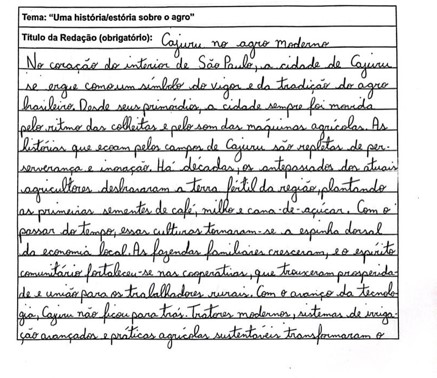 Tema: "Uma história/estória sobre o agro"
Título da Redação (obrigatório): Cajuru no agro moderno
No coração do interior de São Paulo, a cidade de Cajuru
se ergue como um símbolo do vigor e da tradição do agro
brasileiro. Desde seus primórdios, a cidade sempre foi movida
pelo ritmo das colheitas e pelo som das maquinas agrícolas. As
histórias que ecoam pelos campos de Cajuru são repletas de per-
serverança e inovação. Há décadas, os antepassados dos atuais
agricultores desbravaram a terra fértil da região, plantando
as primeiras sementes de café, milho e cana-de-açúcar. Com o
passar do tempo, essas culturas tornaram-se a espinha dorsal
da economia local. As fazendas familiares cresceram, e o espírito
comunitário fortaleceu-se nas cooperativas, que trouxeram prosperida-
de e união para os trabalhadores rurais. Com o avanço da tecnolo-
gia, Cajuru não ficou para trás. Tratores modernos, sistemas de irriga-
ção avançados e práticas agrícolas sustentáveis transformaram o